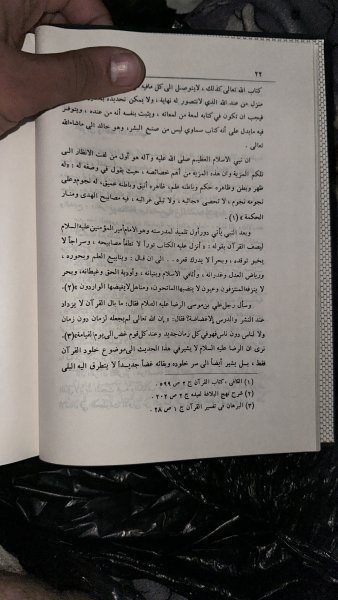 ٢٢
كتاب الله تعالى كذلك ، لايتوصل الى كل مافيه
منزل من عند الله الذي لانتصور له نهاية ، ولا يمكن تحديده
فيجب ان تكون في كتابه لمعة من لمعاته ، ويثبت بنفسه أنه من عنده ، ويتوفر
فيه مايدل على أنه كتاب سماوي ليس من صنع البشر، وهو خالد الى ماشاءالله
تعالى .
ان نبي الاسلام العظيم صلى الله عليه وآله هو أول من لفت الانظار الى
تلكم المزية وان هذه المزية من أهم خصائصه ، حيث يقول في وصفه له : وله
ظهر وبطن وظاهره حكم وباطنه علم، ظاهره أنيق وباطنه عميق، له نجوم وعلى
نجومه نجوم ، لا تحصى عجائبه ، ولا تبلى غرائبه ، فيه مصابيح الهدى ومنار
الحكمة » (١) .
وبعد النبي يأتي دور أول تلميذ لمدرسته وهو الامام أمير المؤمنين عليه السلام
ليصف القرآن بقوله : « أنزل عليه الكتاب نوراً لا تطفأ مصابيحه ، وسراجاً لا
يخبو توقده ، وبحراً لا يدرك قعره . . الى ان قال : وينابيع العلم وبحوره ،
ورياض العدل وغدرانه ، وأثافي الاسلام وبنيانه ، وأودية الحق وغيطانه، وبحر
لا ينزفه المنتزفون وعيون لا ينضبها الماتحون ومناهل لا يغيضها الواردون »(٢).
وسأل رجل علي بن موسى الرضا عليه السلام فقال: ما بال القرآن لا يزداد
عند النشر والدرس إلا غضاضة؟ فقال : « إن الله تعالى لم يجعله لزمان دون زمان
ولا لناس دون ناس فهو في كل زمان جديد وعند كل قوم غض الى يوم القيامة»(٣).
نرى ان الرضا عليه السلام لا يشير في هذا الحديث الى موضوع خلود القرآن
فقط ، بسل يشير أيضاً الى سر خلوده وبقائه غضاً جديداً لا يتطرق اليه البلى
(١) الكافي ، كتاب القرآن ج ٢ ص ٥٩٩ .
(٢) شرح نهج البلاغة لعبده ج ٢ ص ٢٠٢ .
(٣) البرهان في تفسير القرآن ج ١ ص ٢٨